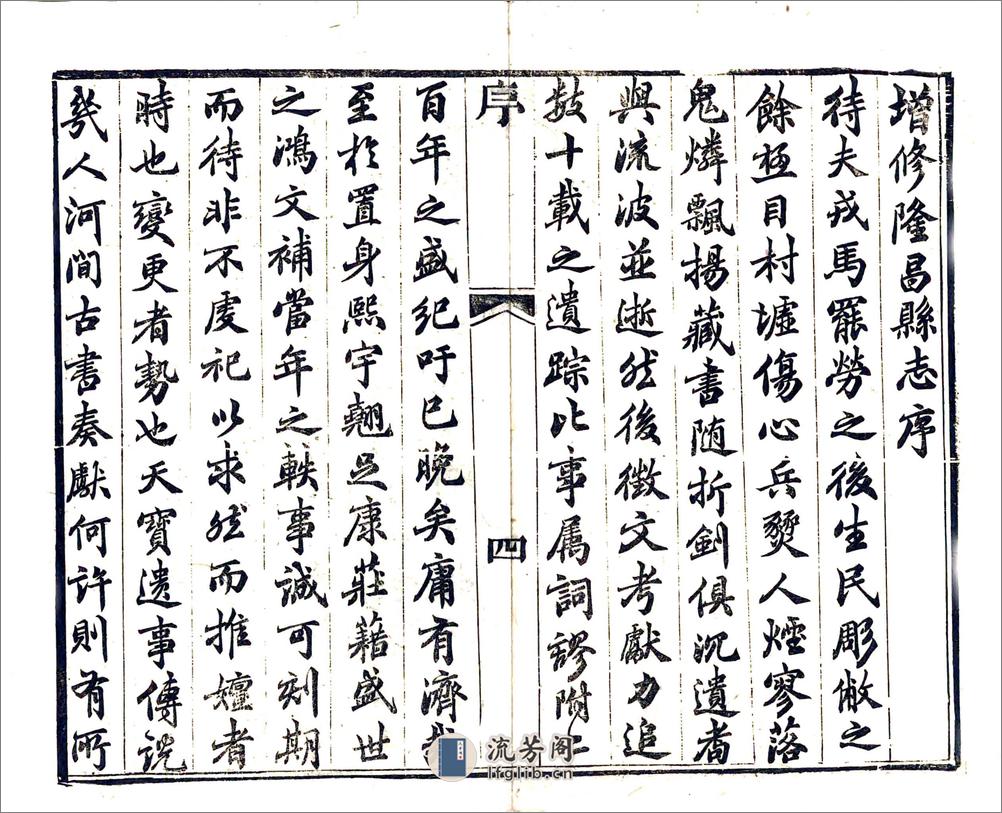 增修隆昌縣志序
待夫戎馬罷勞之後生民彫敝之
餘極目村墟傷心兵燹人煙寥落
鬼燐飄揚藏書随折劍俱沉遺耉
與流波並逝然後徵文考獻力追
数十載之遺踪比事属詞謬附二
序
四
百年之盛纪吁已晚矣庸有濟哉
至於置身熙宇翹足康莊藉盛世
之鴻文補當年之軼事誠可刻期
而待非不虔祀以求然而推嬗者
時也變更者勢也天寶遺事傳説
幾人河間古書奏獻何許則有所
流芳阁
lfglib.cn